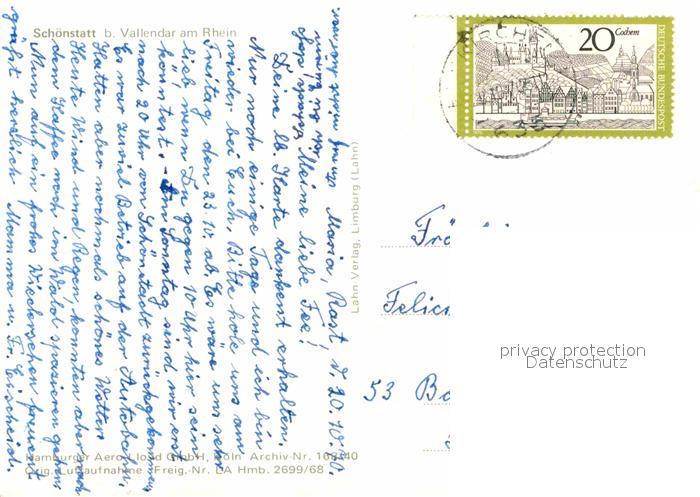 Schönstatt b. Vallendar am Rhein
Maria, Rast, d. 20.10.70.
Meine liebe Fee!
Deine lb. Karte dankent erhalten,
Nur noch einige Tage und ich bin
wieder bei Euch, Bitte hole uns am
Freitag den 23.10. ab, Es wäre uns sehr
lieb wenn Du gegen 10 Uhr hier sein
könntest. - Am Sonntag sind wir erst
nach 20 Uhr von Schönstadt zurückgekommen
Es war zuviel Betrieb auf der Autobahn,
Hatten aber nochmals schönes Wetter
Heute Wind und Regen, konnten aber nach
dem Kaffee noch im Wald spazieren gehen
Nun auf ein frohes Wiedersehen freuent
grüßt herzlich Mamma u. Fr. Eischeid.
Lahn Verlag, Limburg (Lahn)
Hamburger Aero-Lloyd GmbH, Köln Archiv-Nr. 40
Orig. Luftaufnahme (Freig.-Nr. LA Hmb. 2699/68
20 Cochem
DEUTSCHE BUNDESPOST
Frö
Felic
53 Bo
privacy protection
Datenschutz